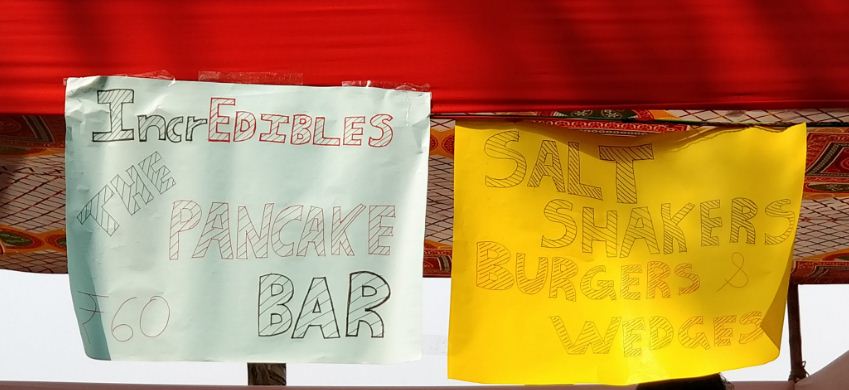 IncrEDIBLES
THE
PANCAKE
BAR
₹60
SALT
SHAKERS
BURGERS &
WEDGES